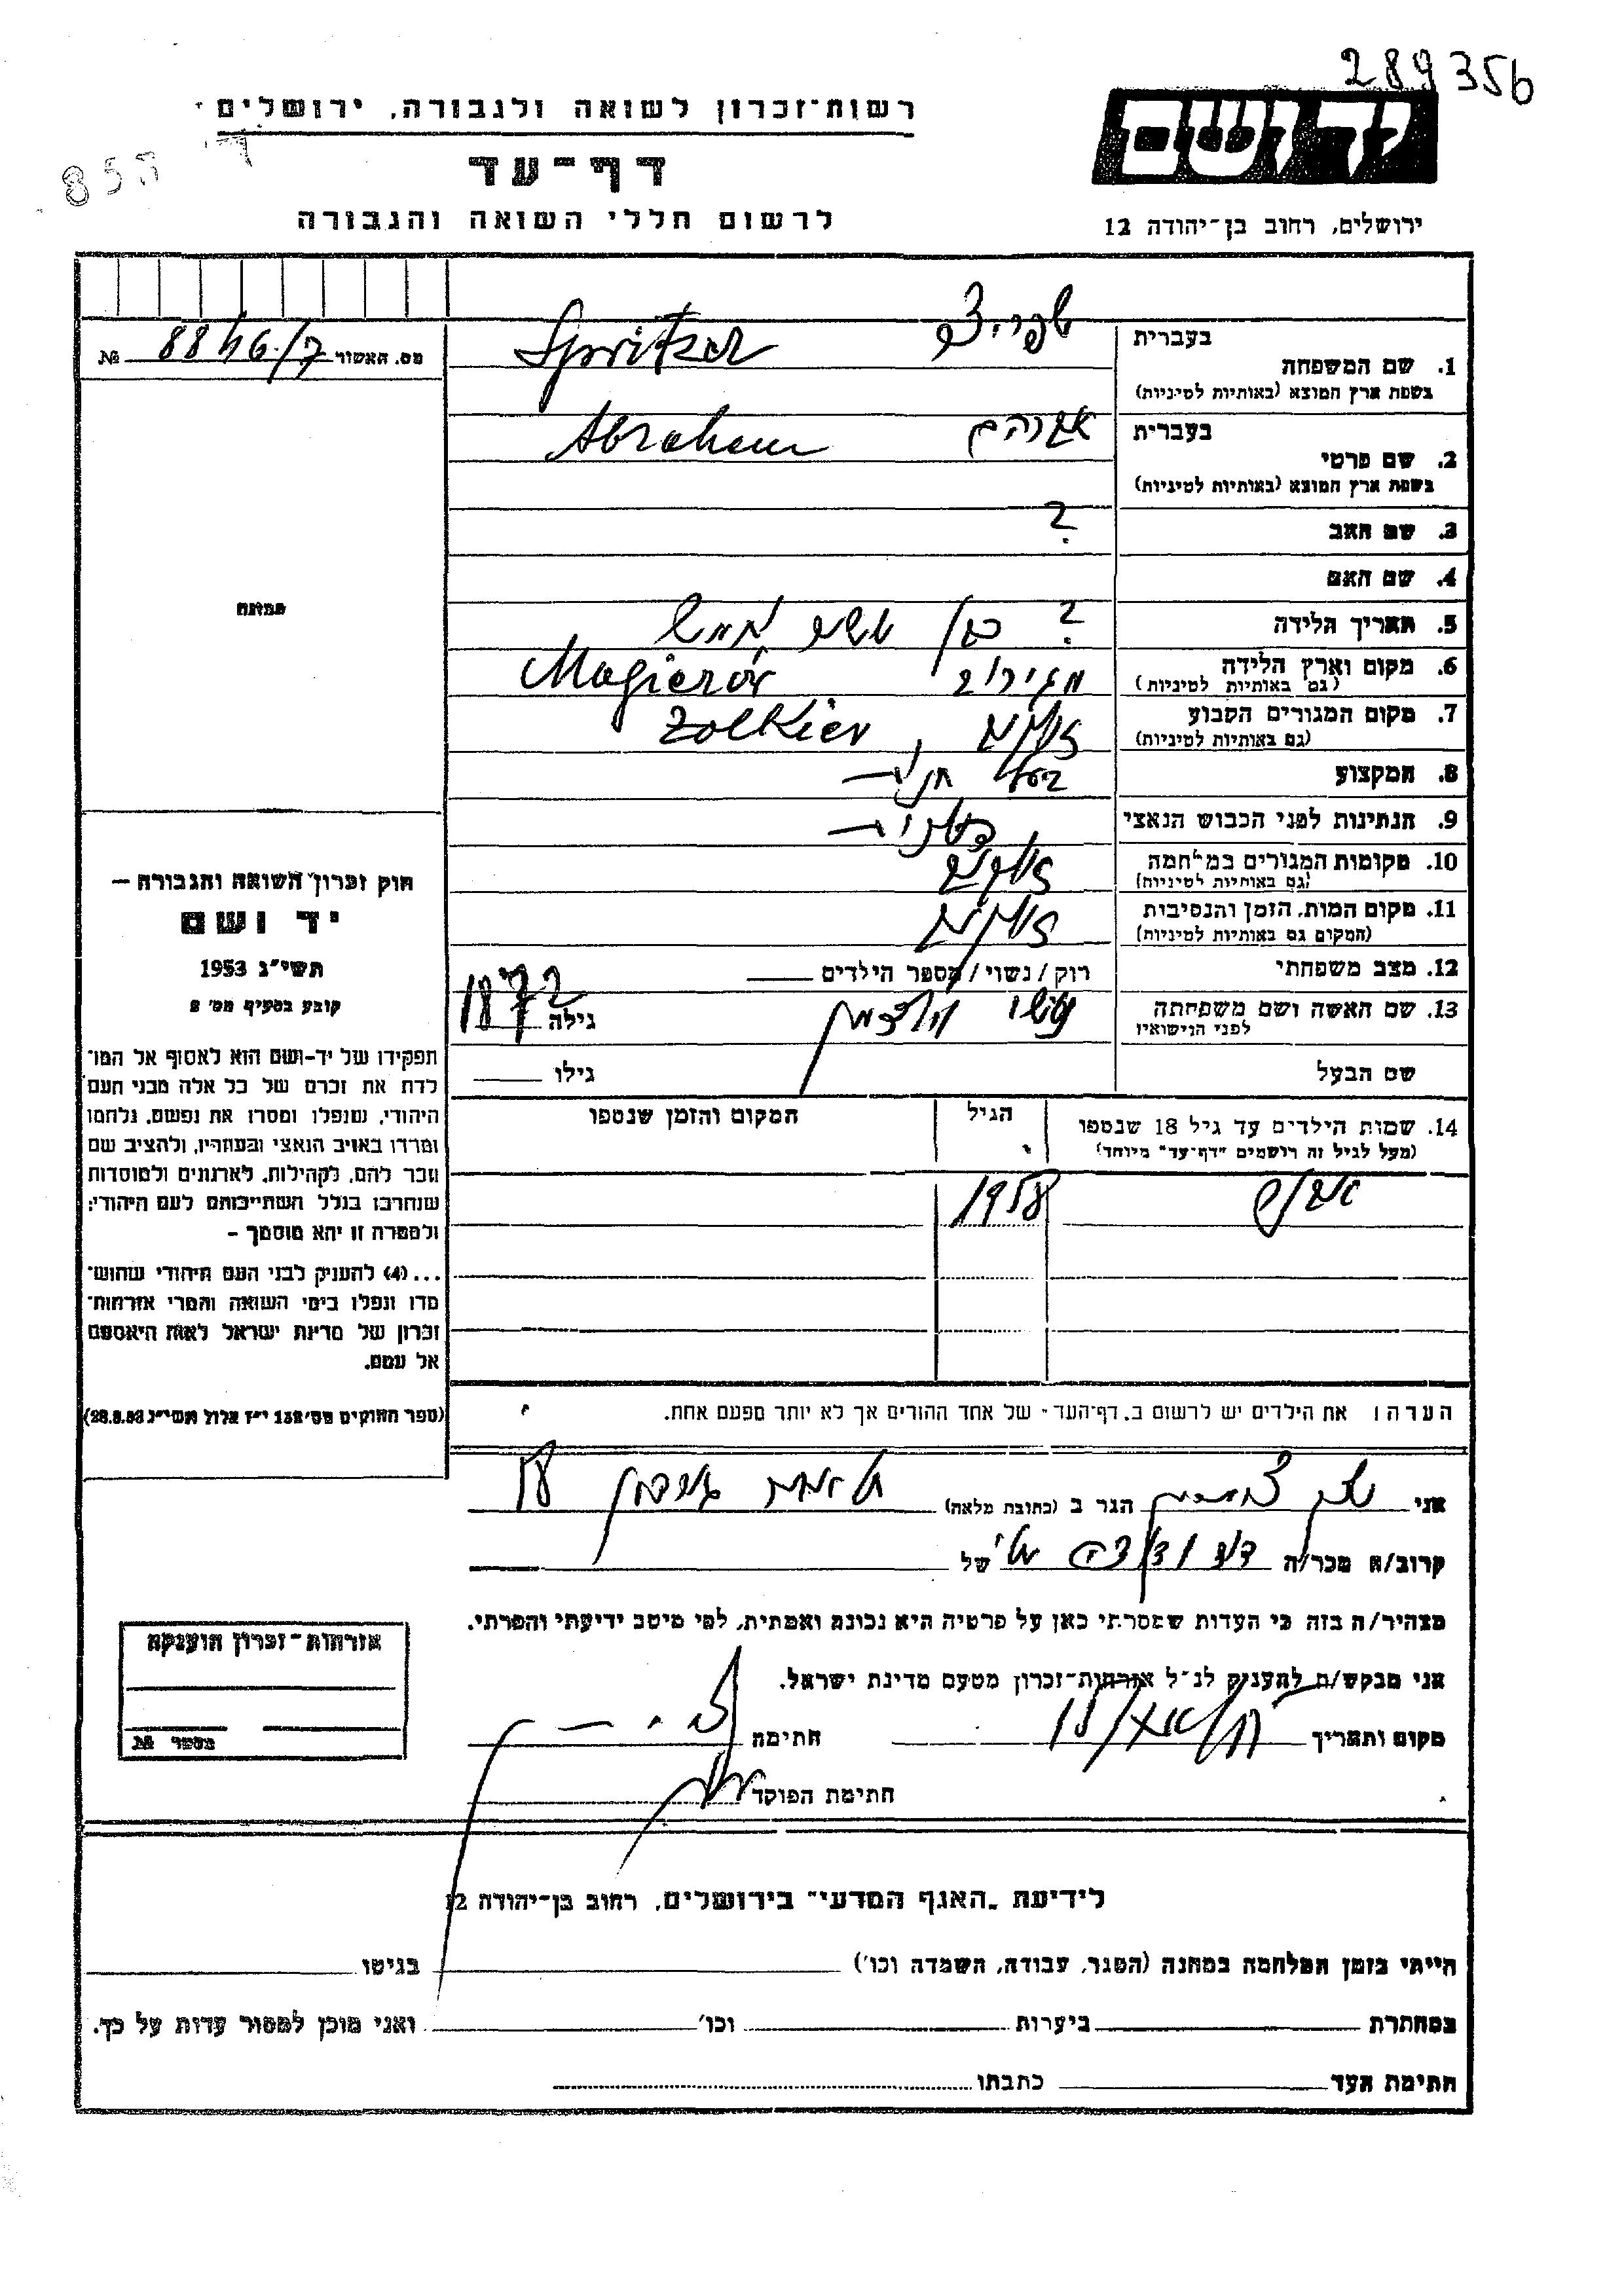 289356
רשות־זכרון לשואה ולגבורה, ירושלים
דף־עד
לרשום חללי השואה והגבורה
יד ושם
ירושלים, רחוב בן־יהודה 12
מס. האשור № 8846/7
1. שם המשפחה
בעברית שפריצר Spritzer
בשפת ארץ המוצא (באותיות לטיניות)
2. שם פרטי
בעברית אברהם Abraham
בשפת ארץ המוצא (באותיות לטיניות)
3. שם האב ?
4. שם האם
5. תאריך הלידה ? בן
6. מקום וארץ הלידה מגירוב Magierów
(גם באותיות לטיניות)
7. מקום המגורים הקבוע Zolkiev
(גם באותיות לטיניות)
8. המקצוע בעל חנות
9. הנתינות לפני הכבוש הנאצי
10. מקומות המגורים במלחמה
(גם באותיות לטיניות)
11. מקום המות, הזמן והנסיבות
(המקום גם באותיות לטיניות)
12. מצב משפחתי רוק / נשוי / מספר הילדים
13. שם האשה ושם משפחתה
לפני הנישואין גילה 1872
שם הבעל גילו
14. שמות הילדים עד גיל 18 שנספו הגיל המקום והזמן שנספו
(מעל לגיל זה רושמים "דף־עד" מיוחד)
1958
הערה: את הילדים יש לרשום ב„דף־העד" של אחד ההורים אך לא יותר מפעם אחת.
תמונה
חוק זכרון השואה והגבורה —
יד ושם
תשי"ג 1953
קובע בסעיף מס' 2
תפקידו של יד-ושם הוא לאסוף אל המו־
לדת את זכרם של כל אלה מבני העם
היהודי, שנפלו ומסרו את נפשם, נלחמו
ומרדו באויב הנאצי ובעוזריו, ולהציב שם
וזכר להם, לקהילות, לארגונים ולמוסדות
שנחרבו בגלל השתייכותם לעם היהודי;
ולמטרה זו יהא מוסמך –
...(4) להעניק לבני העם היהודי שהוש־
מדו ונפלו בימי השואה והמרי אזרחות־
זכרון של מדינת ישראל לאות היאספם
אל עמם.
(ספר החוקים מס' 132 י"ז אלול תשי"ג 28.8.53)
אני הגר ב (כתובת מלאה)
קרוב/ה מכר/ה של
מצהיר/ה בזה כי העדות שמסרתי כאן על פרטיה היא נכונה ואמתית, לפי מיטב ידיעתי והכרתי.
אני מבקש/ת להעניק לנ"ל אזרחות־זכרון מטעם מדינת ישראל.
מקום ותאריך חתימה
חתימת הפוקד
אזרחות־זכרון הוענקה
מספר №
לידיעת „האגף המדעי" בירושלים, רחוב בן־יהודה 12
הייתי בזמן המלחמה במחנה (הסגר, עבודה, השמדה וכו') בגיטו
במחתרת ביערות וכו' ואני מוכן למסור עדות על כך.
חתימת העד כתבתו